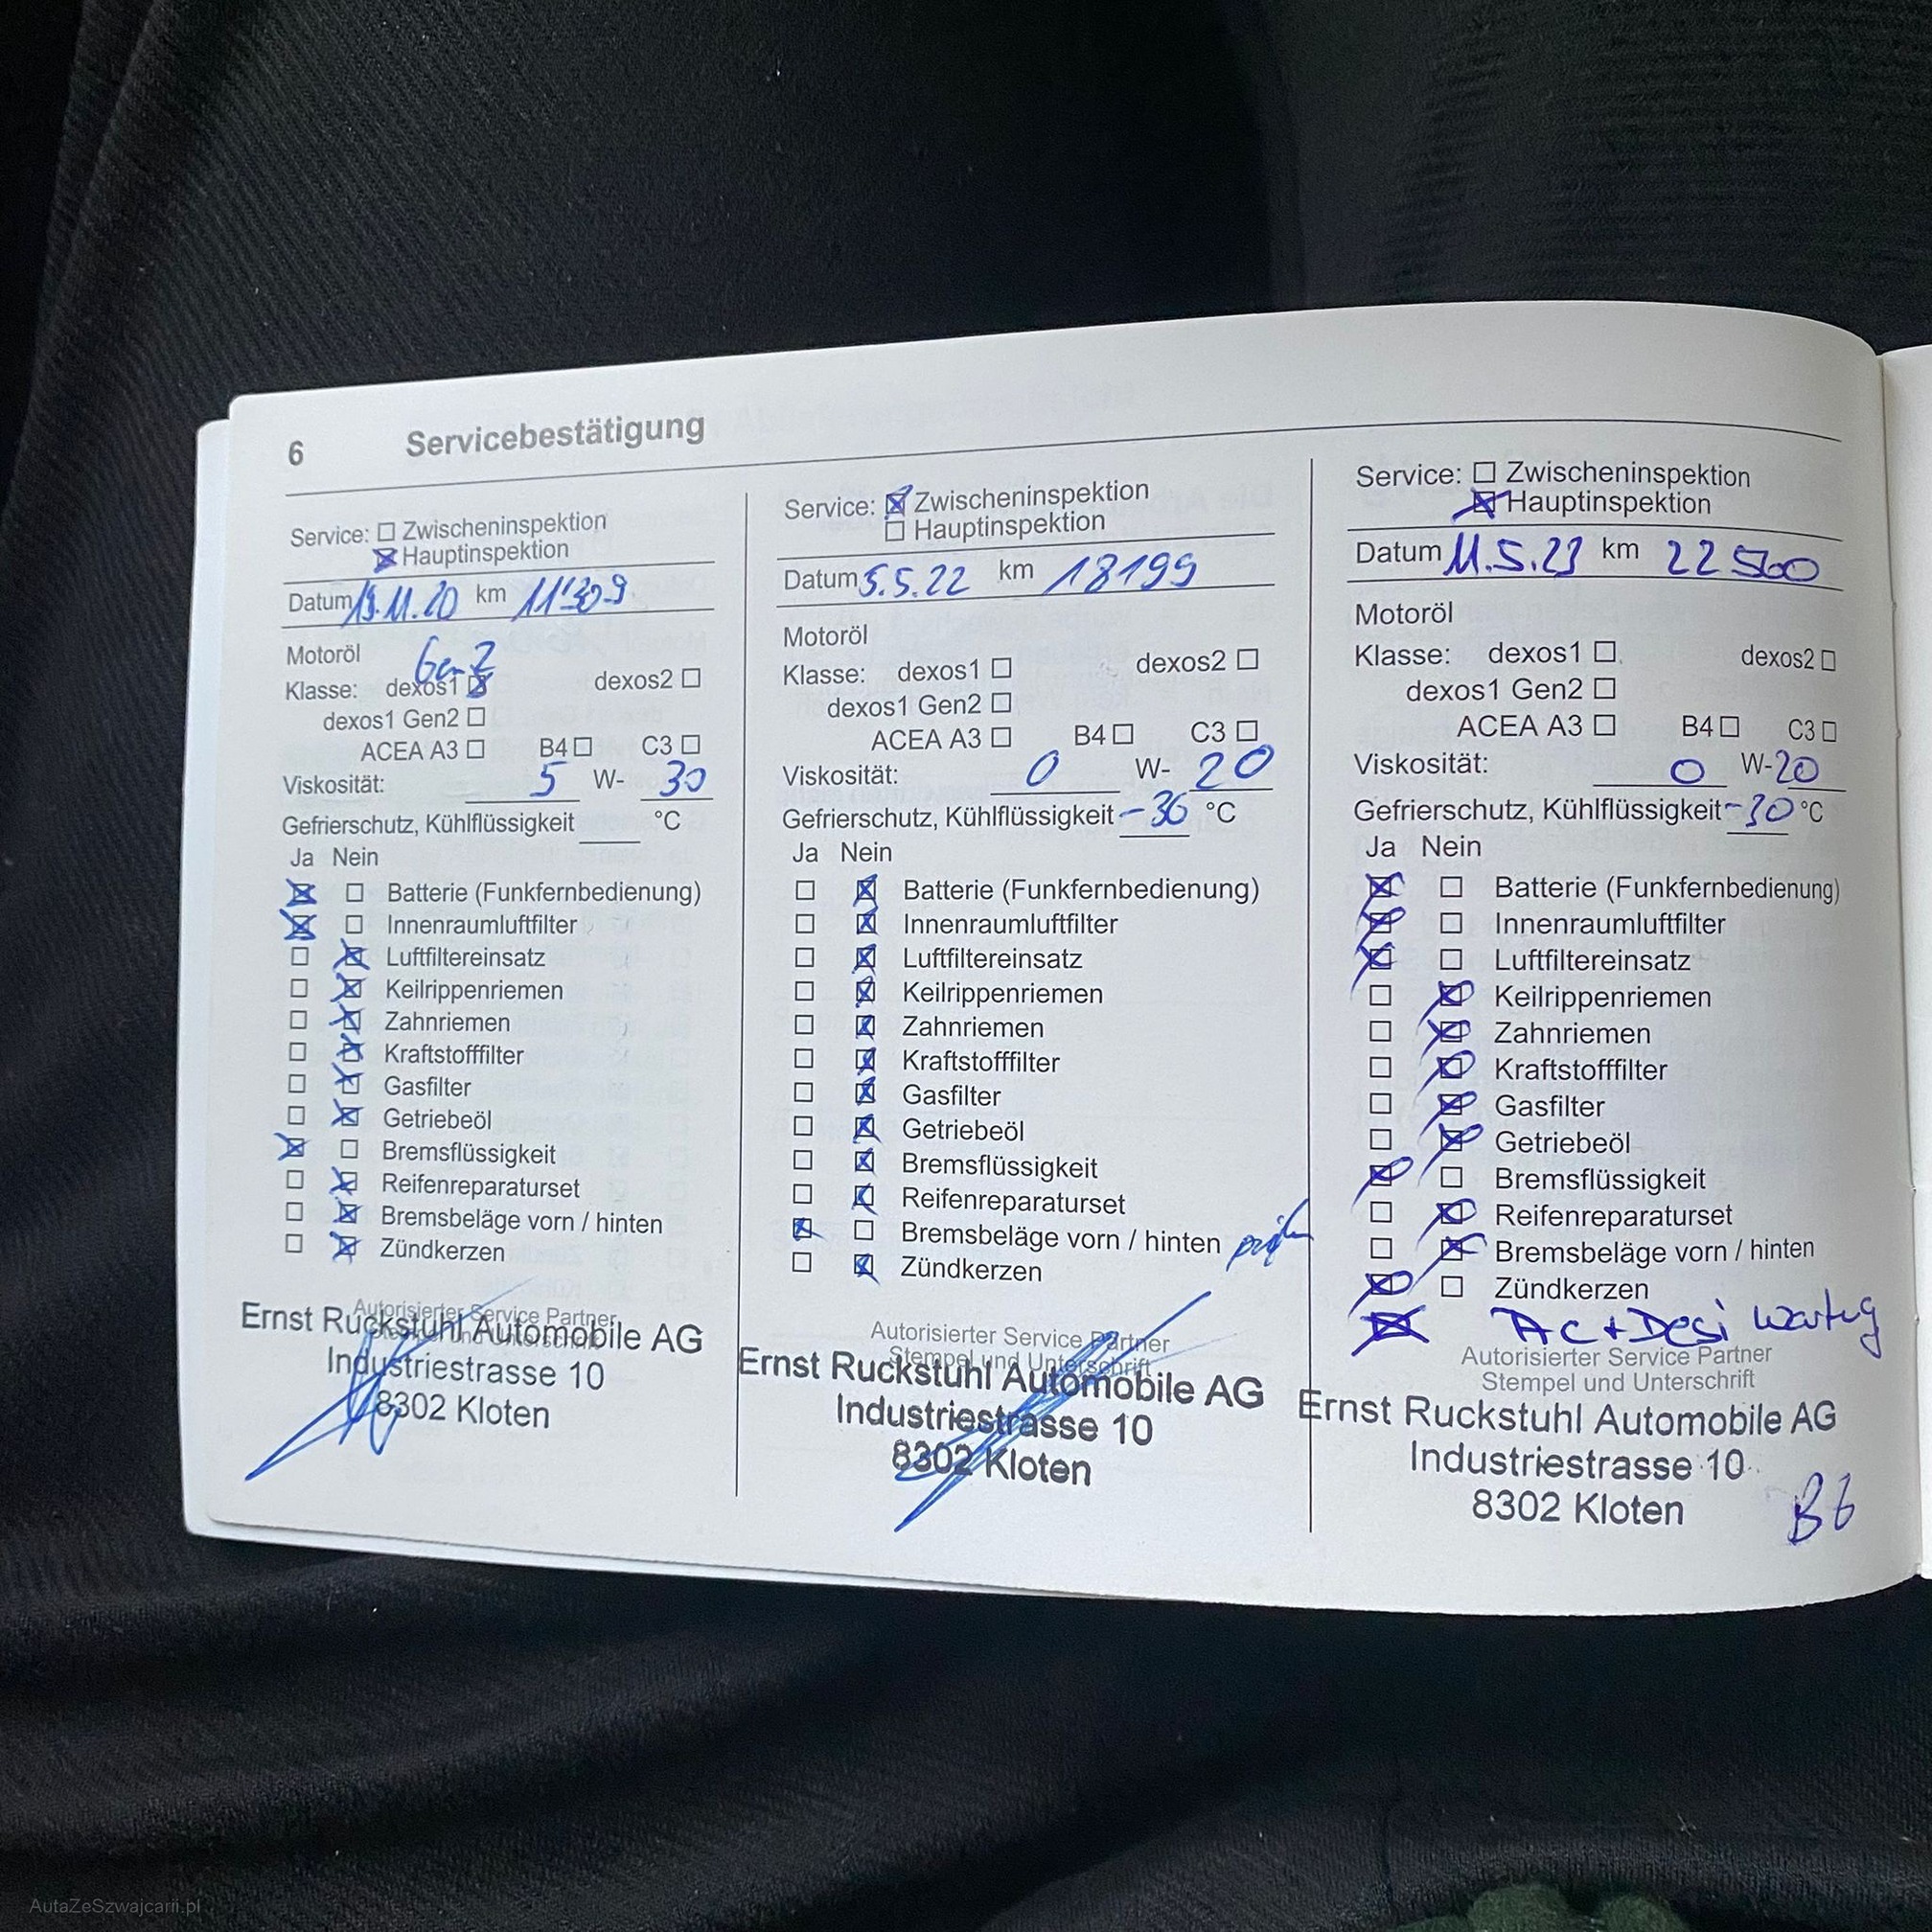 6 Servicebestätigung
Service: ☐ Zwischeninspektion
☒ Hauptinspektion
Datum 19.11.20 km 11'309
Motoröl Gen 2
Klasse: dexos1 ☒ dexos2 ☐
dexos1 Gen2 ☐
ACEA A3 ☐ B4 ☐ C3 ☐
Viskosität: 5 W- 30
Gefrierschutz, Kühlflüssigkeit °C
Ja Nein
☒ ☐ Batterie (Funkfernbedienung)
☒ ☐ Innenraumluftfilter
☐ ☒ Luftfiltereinsatz
☐ ☒ Keilrippenriemen
☐ ☒ Zahnriemen
☐ ☒ Kraftstofffilter
☐ ☒ Gasfilter
☐ ☒ Getriebeöl
☒ ☐ Bremsflüssigkeit
☐ ☒ Reifenreparaturset
☐ ☒ Bremsbeläge vorn / hinten
☐ ☒ Zündkerzen
Autorisierter Service Partner
Stempel und Unterschrift
Ernst Ruckstuhl Automobile AG
Industriestrasse 10
8302 Kloten
Service: ☒ Zwischeninspektion
☐ Hauptinspektion
Datum 5.5.22 km 18199
Motoröl
Klasse: dexos1 ☐ dexos2 ☐
dexos1 Gen2 ☐
ACEA A3 ☐ B4 ☐ C3 ☐
Viskosität: 0 W- 20
Gefrierschutz, Kühlflüssigkeit -36 °C
Ja Nein
☐ ☒ Batterie (Funkfernbedienung)
☐ ☒ Innenraumluftfilter
☐ ☒ Luftfiltereinsatz
☐ ☒ Keilrippenriemen
☐ ☒ Zahnriemen
☐ ☒ Kraftstofffilter
☐ ☒ Gasfilter
☐ ☒ Getriebeöl
☐ ☒ Bremsflüssigkeit
☐ ☒ Reifenreparaturset
☒ ☐ Bremsbeläge vorn / hinten
☐ ☒ Zündkerzen
Autorisierter Service Partner
Stempel und Unterschrift
Ernst Ruckstuhl Automobile AG
Industriestrasse 10
8302 Kloten
Service: ☐ Zwischeninspektion
☒ Hauptinspektion
Datum 11.5.23 km 22 500
Motoröl
Klasse: dexos1 ☐ dexos2 ☐
dexos1 Gen2 ☐
ACEA A3 ☐ B4 ☐ C3 ☐
Viskosität: 0 W-20
Gefrierschutz, Kühlflüssigkeit -30 °C
Ja Nein
☒ ☐ Batterie (Funkfernbedienung)
☒ ☐ Innenraumluftfilter
☒ ☐ Luftfiltereinsatz
☐ ☒ Keilrippenriemen
☐ ☒ Zahnriemen
☐ ☒ Kraftstofffilter
☐ ☒ Gasfilter
☐ ☒ Getriebeöl
☒ ☐ Bremsflüssigkeit
☐ ☒ Reifenreparaturset
☐ ☒ Bremsbeläge vorn / hinten
☒ ☐ Zündkerzen
☒ AC + Desi wartug
Autorisierter Service Partner
Stempel und Unterschrift
Ernst Ruckstuhl Automobile AG
Industriestrasse 10
8302 Kloten
AutaZeSzwajcarii.pl